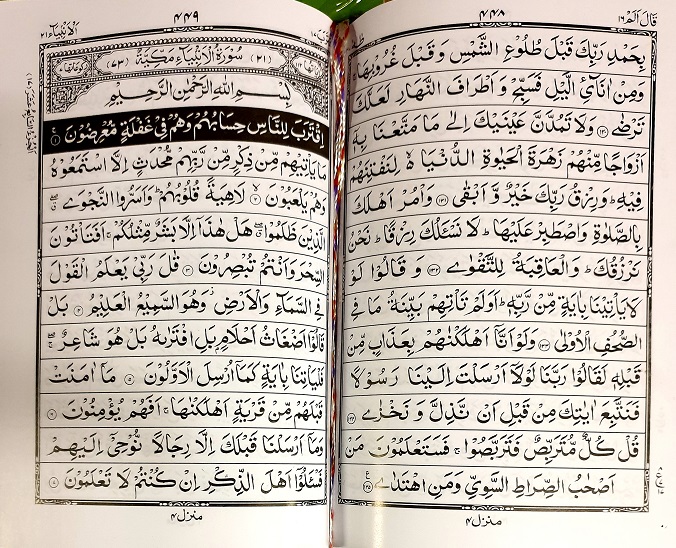 قَالَ اَلَمْ ١٦
٤٤٨
بِحَمْدِ رَبِّكَ قَبْلَ طُلُوْعِ الشَّمْسِ وَقَبْلَ غُرُوْبِهَا ۚ
وَمِنْ اٰنَآئِ الَّيْلِ فَسَبِّحْ وَاَطْرَافَ النَّهَارِ لَعَلَّكَ
تَرْضٰى ﴿١٣٠﴾ وَلَا تَمُدَّنَّ عَيْنَيْكَ اِلٰى مَا مَتَّعْنَا بِهٖٓ
اَزْوَاجًا مِّنْهُمْ زَهْرَةَ الْحَيٰوةِ الدُّنْيَا ۙ لِنَفْتِنَهُمْ
فِيْهِ ؕ وَرِزْقُ رَبِّكَ خَيْرٌ وَّ اَبْقٰى ﴿١٣١﴾ وَاْمُرْ اَهْلَكَ
بِالصَّلٰوةِ وَاصْطَبِرْ عَلَيْهَا ؕ لَا نَسْئَلُكَ رِزْقًا ؕ نَحْنُ
نَرْزُقُكَ ؕ وَالْعَاقِبَةُ لِلتَّقْوٰى ﴿١٣٢﴾ وَقَالُوْا لَوْ
لَا يَاْتِيْنَا بِاٰيَةٍ مِّنْ رَّبِّهٖ ؕ اَوَلَمْ تَاْتِهِمْ بَيِّنَةُ مَا فِى
الصُّحُفِ الْاُوْلٰى ﴿١٣٣﴾ وَلَوْ اَنَّآ اَهْلَكْنٰهُمْ بِعَذَابٍ مِّنْ
قَبْلِهٖ لَقَالُوْا رَبَّنَا لَوْلَآ اَرْسَلْتَ اِلَيْنَا رَسُوْلًا
فَنَتَّبِعَ اٰيٰتِكَ مِنْ قَبْلِ اَنْ نَّذِلَّ وَ نَخْزٰى ﴿١٣٤﴾
قُلْ كُلٌّ مُّتَرَبِّصٌ فَتَرَبَّصُوْا ۚ فَسَتَعْلَمُوْنَ مَنْ
اَصْحٰبُ الصِّرَاطِ السَّوِيِّ وَمَنِ اهْتَدٰى ﴿١٣٥﴾
منزل ٤
٤٤٩
اَلْاَنْۢبِيَآء ٢١
(٢١) سُوْرَةُ الْاَنْۢبِيَآءِ مَكِّيَّةٌ (٧٣)
بِسْمِ اللهِ الرَّحْمٰنِ الرَّحِيْمِ
اِقْتَرَبَ لِلنَّاسِ حِسَابُهُمْ وَهُمْ فِيْ غَفْلَةٍ مُّعْرِضُوْنَ ﴿١﴾
مَا يَاْتِيْهِمْ مِّنْ ذِكْرٍ مِّنْ رَّبِّهِمْ مُّحْدَثٍ اِلَّا اسْتَمَعُوْهُ
وَهُمْ يَلْعَبُوْنَ ﴿٢﴾ لَاهِيَةً قُلُوْبُهُمْ ؕ وَاَسَرُّوا النَّجْوَى
الَّذِيْنَ ظَلَمُوْا ۖ هَلْ هٰذَآ اِلَّا بَشَرٌ مِّثْلُكُمْ ۚ اَفَتَاْتُوْنَ
السِّحْرَ وَاَنْتُمْ تُبْصِرُوْنَ ﴿٣﴾ قٰلَ رَبِّيْ يَعْلَمُ الْقَوْلَ
فِى السَّمَآءِ وَالْاَرْضِ ۫ وَهُوَ السَّمِيْعُ الْعَلِيْمُ ﴿٤﴾ بَلْ
قَالُوْٓا اَضْغَاثُ اَحْلَامٍۭ بَلِ افْتَرٰىهُ بَلْ هُوَ شَاعِرٌ ۖ
فَلْيَاْتِنَا بِاٰيَةٍ كَمَآ اُرْسِلَ الْاَوَّلُوْنَ ﴿٥﴾ مَآ اٰمَنَتْ
قَبْلَهُمْ مِّنْ قَرْيَةٍ اَهْلَكْنٰهَا ۚ اَفَهُمْ يُؤْمِنُوْنَ ﴿٦﴾
وَمَآ اَرْسَلْنَا قَبْلَكَ اِلَّا رِجَالًا نُّوْحِيْٓ اِلَيْهِمْ
فَسْئَلُوْٓا اَهْلَ الذِّكْرِ اِنْ كُنْتُمْ لَا تَعْلَمُوْنَ ﴿٧﴾
منزل ٤